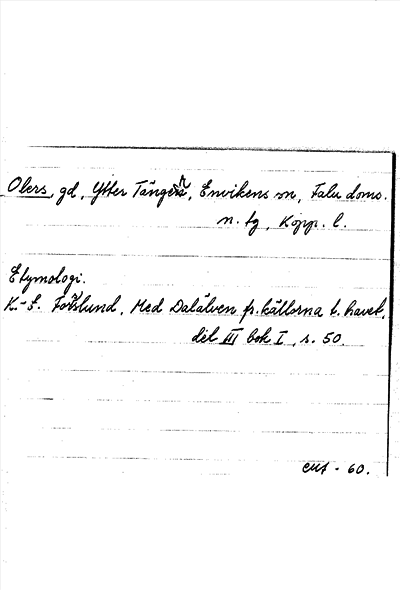 Olers, gd, Ytter Tänger, Envikens sn, Falu doms.
n. tg, Kopp. l.
Etymologi.
K.-E. Forslund, Med Dalälven fr. källorna t. havet,
del III bok I, s. 50.
- 60.